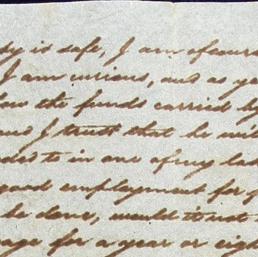 sy is safe, I am of cours
I am curious, and as ye
how the funds carried by
and I trust that he will
ded to in one of my la
good employment for
be done, would it not
age for a year or eigh